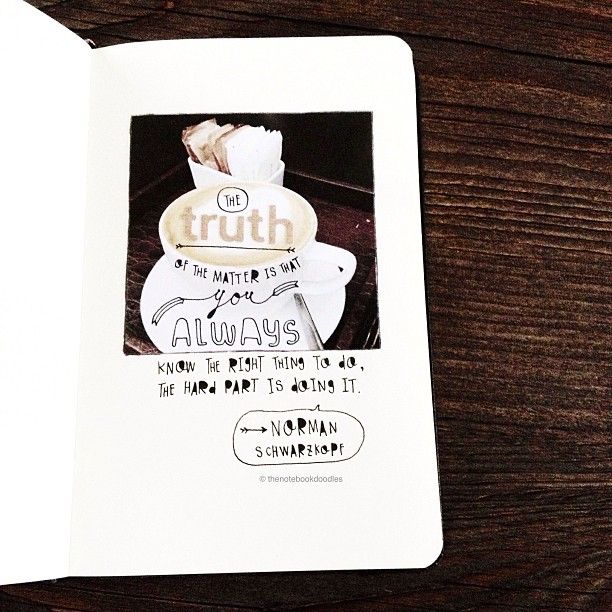 THE
truth
OF THE MATTER IS THAT
you
ALWAYS
KNOW THE RIGHT THING TO do,
THE HARD PART IS dOING IT.
NORMAN
SCHWARZKOPF
© thenotebookdoodles